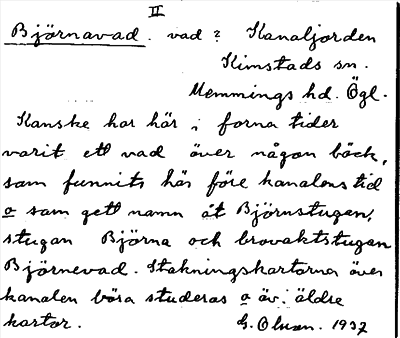 II
Björnavad. vad? Kanaljorden
Kimstads sn.
Memmings hd. Ögl.
Kanske har här i forna tider
varit ett vad över någon bäck,
som funnits här före kanalens tid
o som gett namn åt Björnstugen,
stugan Björna och brovaktstugan
Björnevad. Stakningskartorna över
kanalen böra studeras o äv. äldre
kartor. G. Olsson. 1937